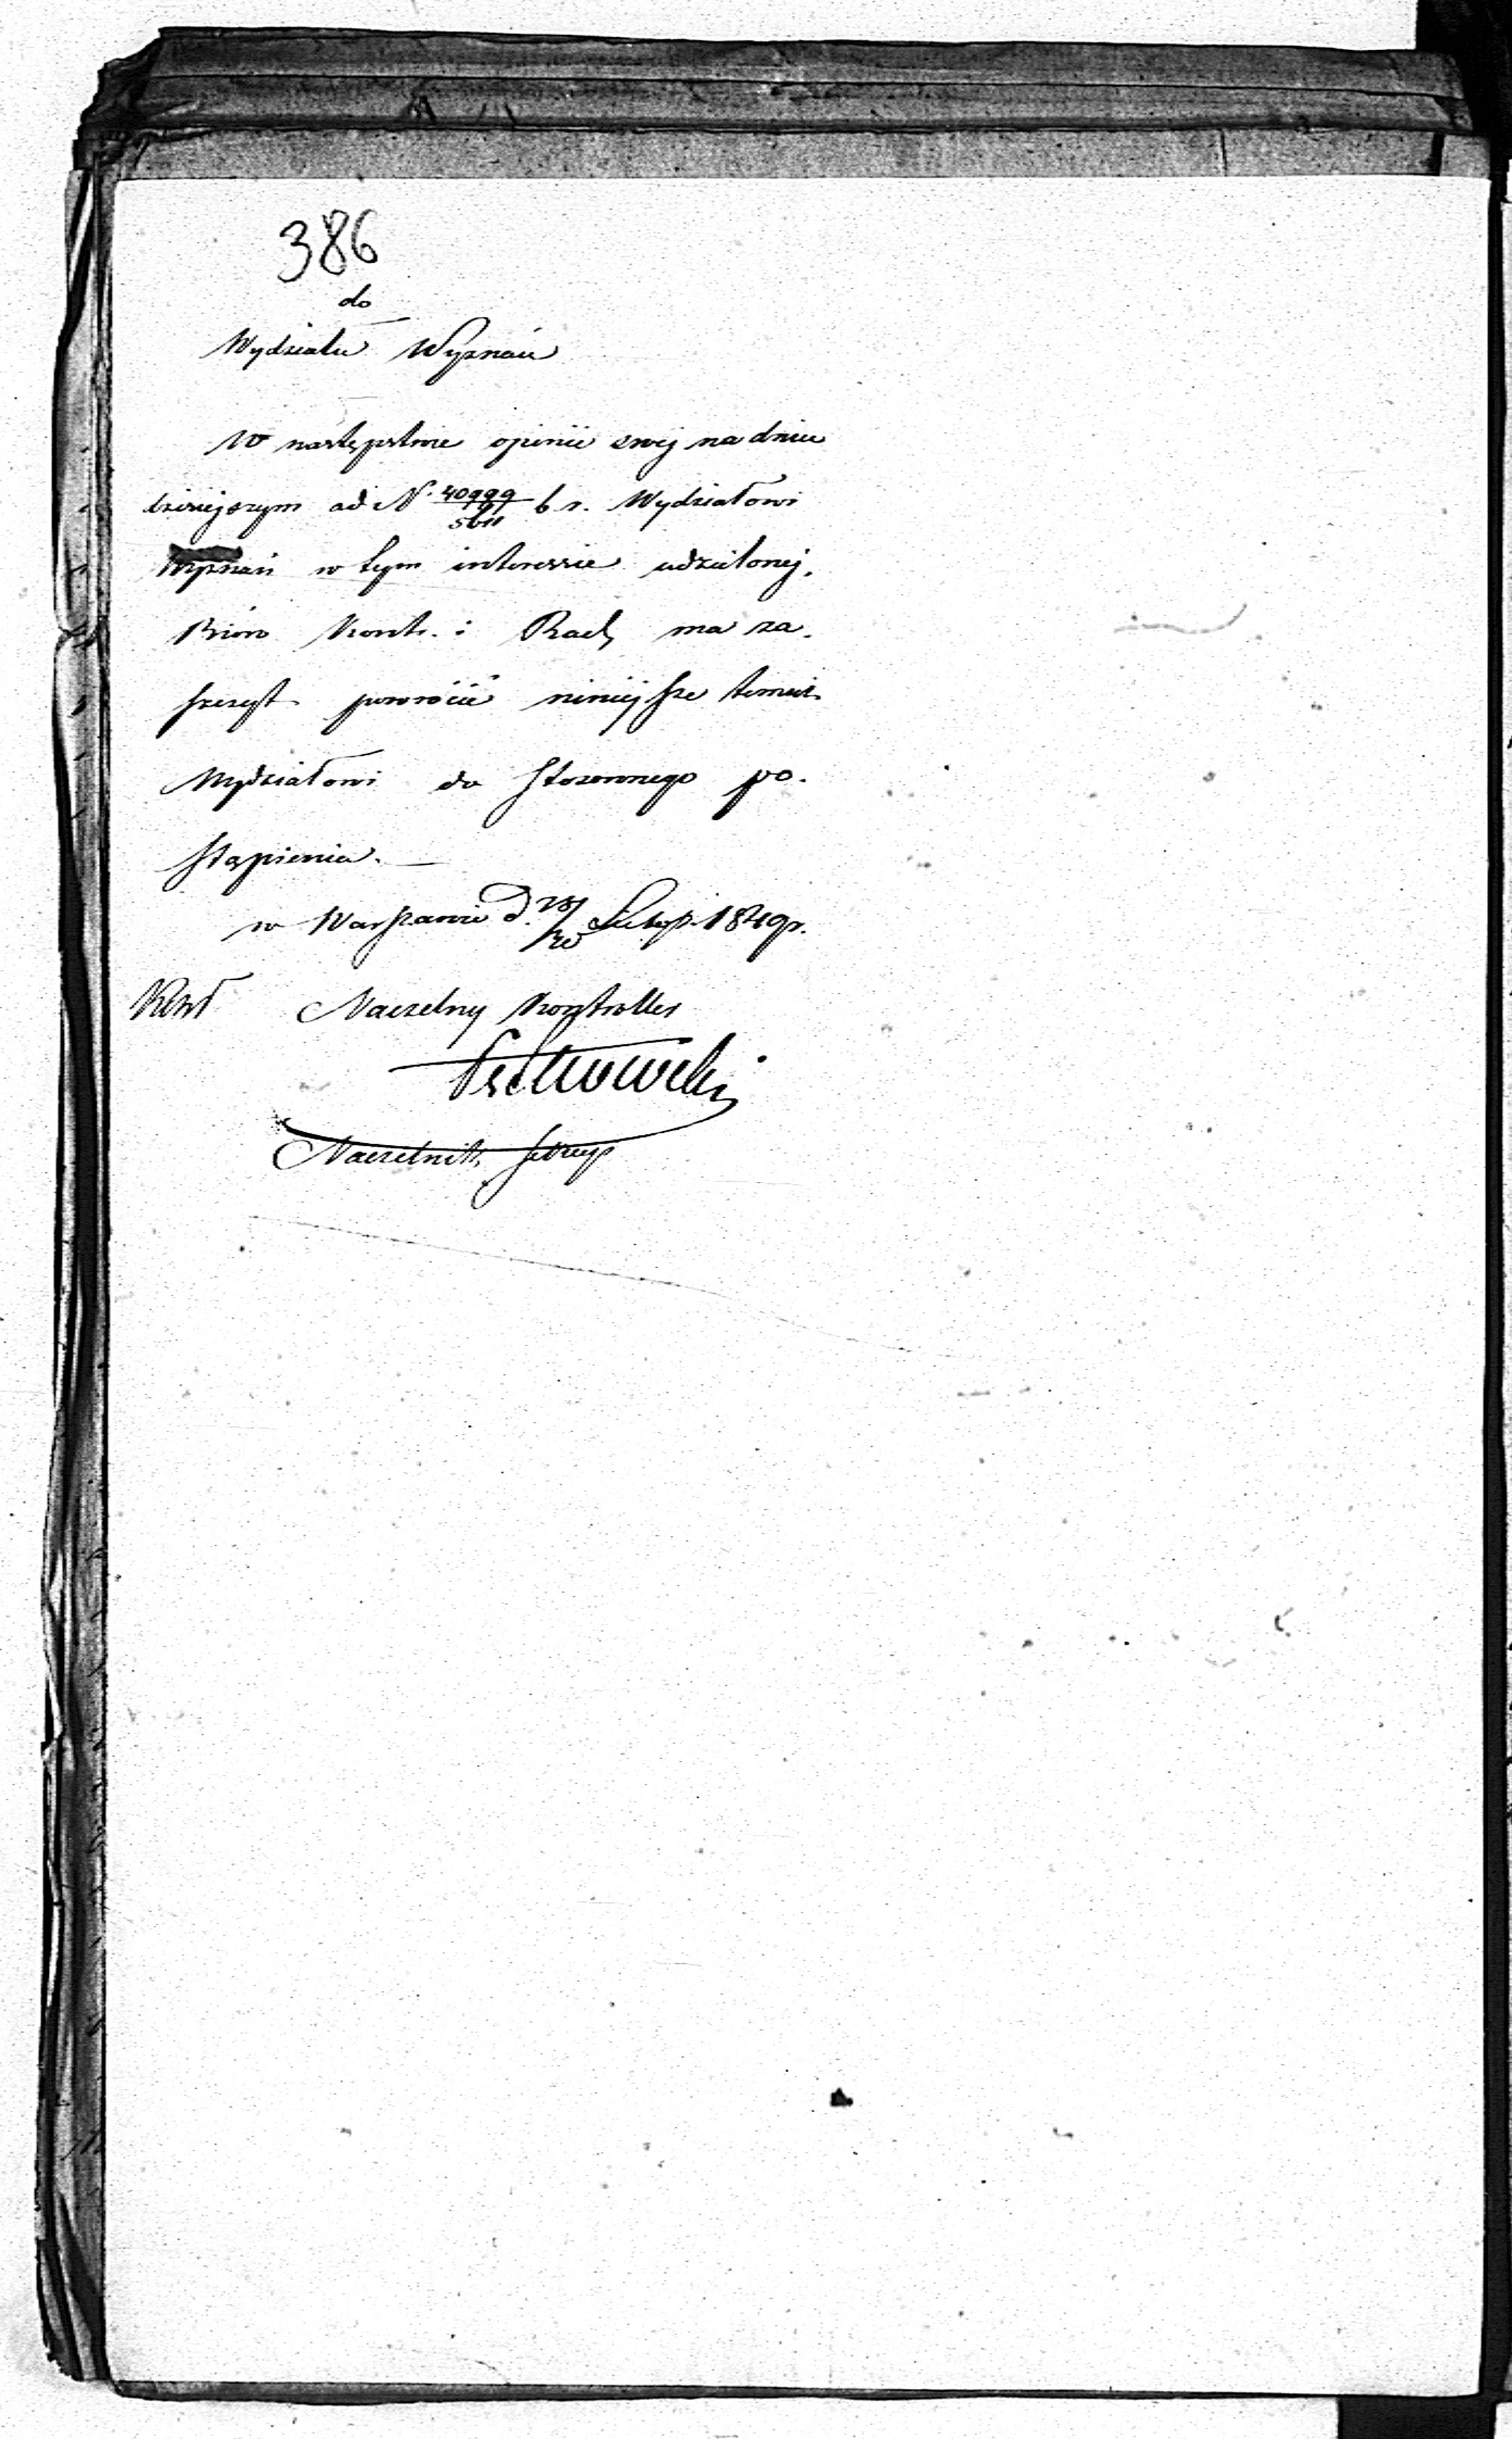 386
do
Wydziału Wyznań
W następstwie opinii swej na dniu
dzisiejszym ad N. 40999 b r. Wydziałowi
Wyznań w tym interessie udzielonej,
Biuro Kontr. i Rach ma za-
szczyt powrócić niniejsze temuż
Wydziałowi do stosownego po-
stąpienia.
w Warszawie d. Listop. 1849 r.
Naczelny Kontroller
Naczelnik Sekcyi